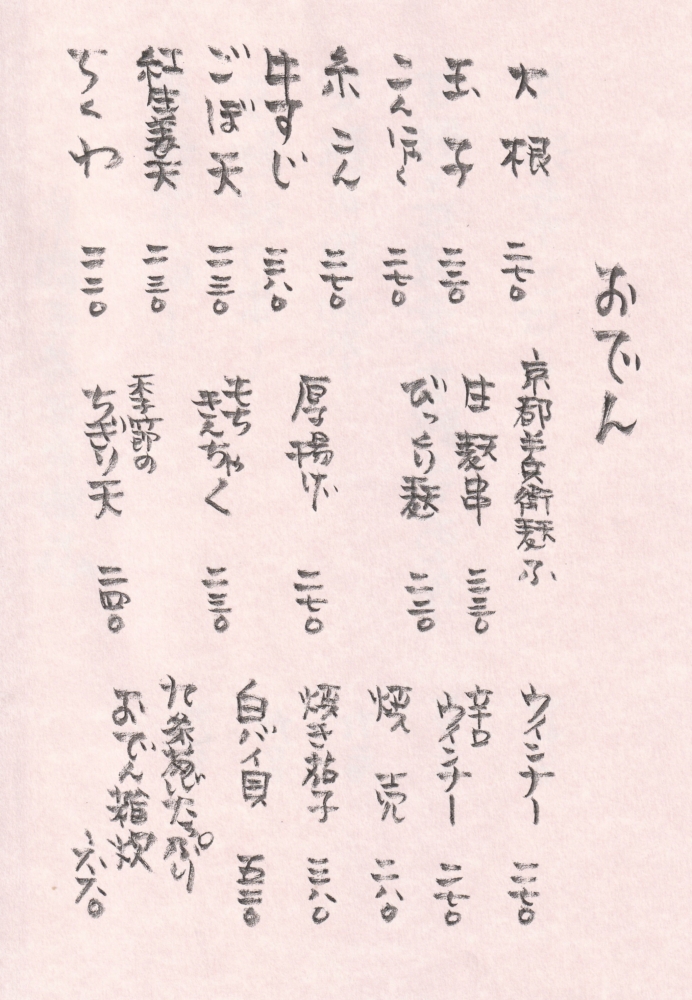 おでん
大根 二七〇
玉子 二三〇
こんにゃく 二七〇
糸こん 二七〇
牛すじ 三八〇
ごぼ天 二三〇
紅生姜天 二三〇
ちくわ 二二〇
京都半兵衛麸ふ
生麸串 三三〇
びっくり麸 二三〇
厚揚げ 二七〇
もち
きんちゃく 二三〇
季節の
ちぎり天 二四〇
ウインナー 二七〇
辛口
ウインナー 二七〇
焼売 二八〇
焼き茄子 三八〇
白バイ貝 五三〇
九条葱たっぷり
おでん雑炊 六八〇